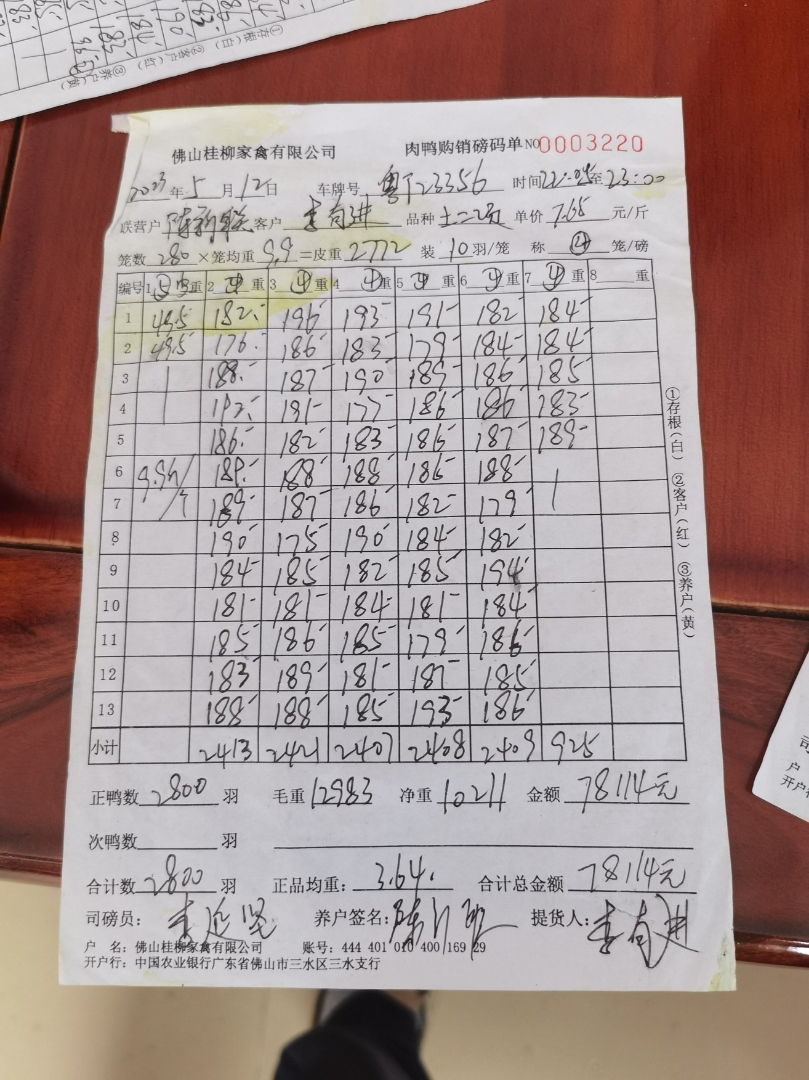 ①存根(白) ②客户(红) ③养户(黄)
佛山桂柳家禽有限公司 肉鸭购销磅码单 NO 0003220
2023年5月12日 车牌号 粤T23356 时间22:05至23:00
联营户 客户 李有进 品种 土二 单价 7.65 元/斤
笼数 280 ×笼均重 9.9 =皮重 2772 装 10 羽/笼 称 ④ 笼/磅
编号 1 ⑤ 重 2 ④ 重 3 ④ 重 4 ④ 重 5 ④ 重 6 ④ 重 7 ④ 重 8 重
1 49.5 182 196 193 191 182 184
2 49.5 176 186 183 179 184 184
3 188 187 190 189 186 185
4 191 177 186 186 183
5 186 182 183 186 187 189
6 189 188 188 186 188
7 189 187 186 182 179
8 190 175 190 184 182
9 184 185 182 185 194
10 181 181 184 181 184
11 185 186 185 179 186
12 183 189 181 187 185
13 188 188 185 193 186
小计 2413 2421 2407 2408 2409 925
正鸭数 2800 羽 毛重 12983 净重 10211 金额 78114元
次鸭数 羽
合计数 2800 羽 正品均重: 3.64. 合计总金额 78114元
司磅员: 养户签名: 提货人: 李有进
户 名: 佛山桂柳家禽有限公司 账号: 444 401 010 400 169 29
开户行: 中国农业银行广东省佛山市三水区三水支行
①存根(白) ②客户(红) ③养户(黄)